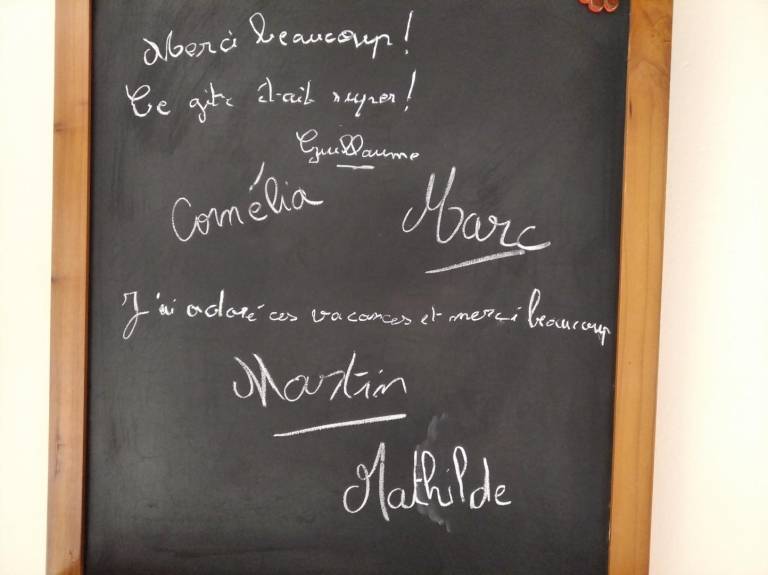 Merci beaucoup !
Ce gite était super !
Guillaume
Cornélia
Marc
J'ai adoré ces vacances et merci beaucoup
Martin
Mathilde